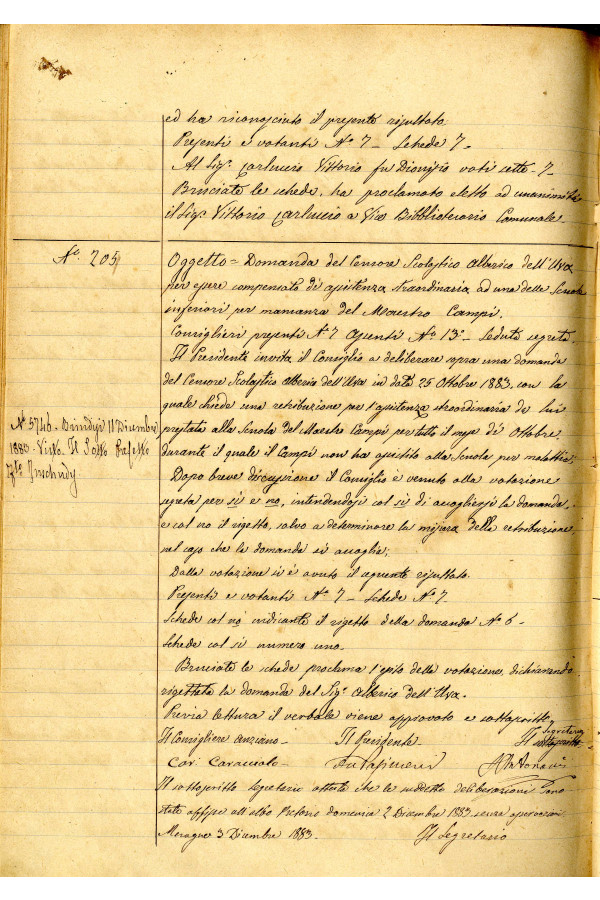 ed ha riconosciuto il presente risultato.
Presenti e votanti N.° 7 - Schede 7 -
Al Sig.r Carluccio Vittorio fu Dionisio voti sette - 7 -
Bruciate le schede, ha proclamato eletto ad unanimità
il Sig.r Vittorio Carluccio a Vice Bibbliotecario Comunale -
N.° 205
Oggetto = Domanda del Censore Scolastico Alberico dell'Uva
per essere compensato di assistenza straordinaria ad una delle Scuole
inferiori per mancanza del Maestro Campi.
Consiglieri presenti N.° 7 Assenti N.° 13 - Seduta segreta.
Il Presidente invita il Consiglio a deliberare sopra una domanda
del Censore Scolastico Alberico dell'Uva in data 25 Ottobre 1883, con la
quale chiede una retribuzione per l'assistenza straordinaria da lui
prestata alla Scuola del Maestro Campi per tutto il mese di Ottobre,
durante il quale il Campi non ha assistito alla Scuola, per malattia.
N.° 5746 - Brindisi 11 Dicembre
1883 - Visto - Il Sotto Prefetto
Dopo breve discussione il Consiglio è venuto alla votazione
segreta per si e no, intendendosi col si di accogliersi la domanda,
e col no il rigetto, salvo a determinare la misura della retribuzione,
nel caso che la domanda si accoglie;
Dalla votazione si è avuto il seguente risultato.
Presenti e votanti N.° 7 - Schede N.° 7
Schede col no indicante il rigetto della domanda N.° 6 -
Schede col si numero uno.
Bruciate le schede proclama l'esito della votazione, dichiarando
rigettata la domanda del Sig.r Alberico dell'Uva.
Previa lettura il verbale viene approvato e sottoscritto
Il Consigliere anziano - Il Presidente - Il Segretario
Car. Caracciolo -
Il sottoscritto Segretario attesta che le suddette deliberazioni sono
state affisse all'albo Pretorio domenica 2 Dicembre 1883 senza opposizioni
Mesagne 3 Dicembre 1883. Il Segretario